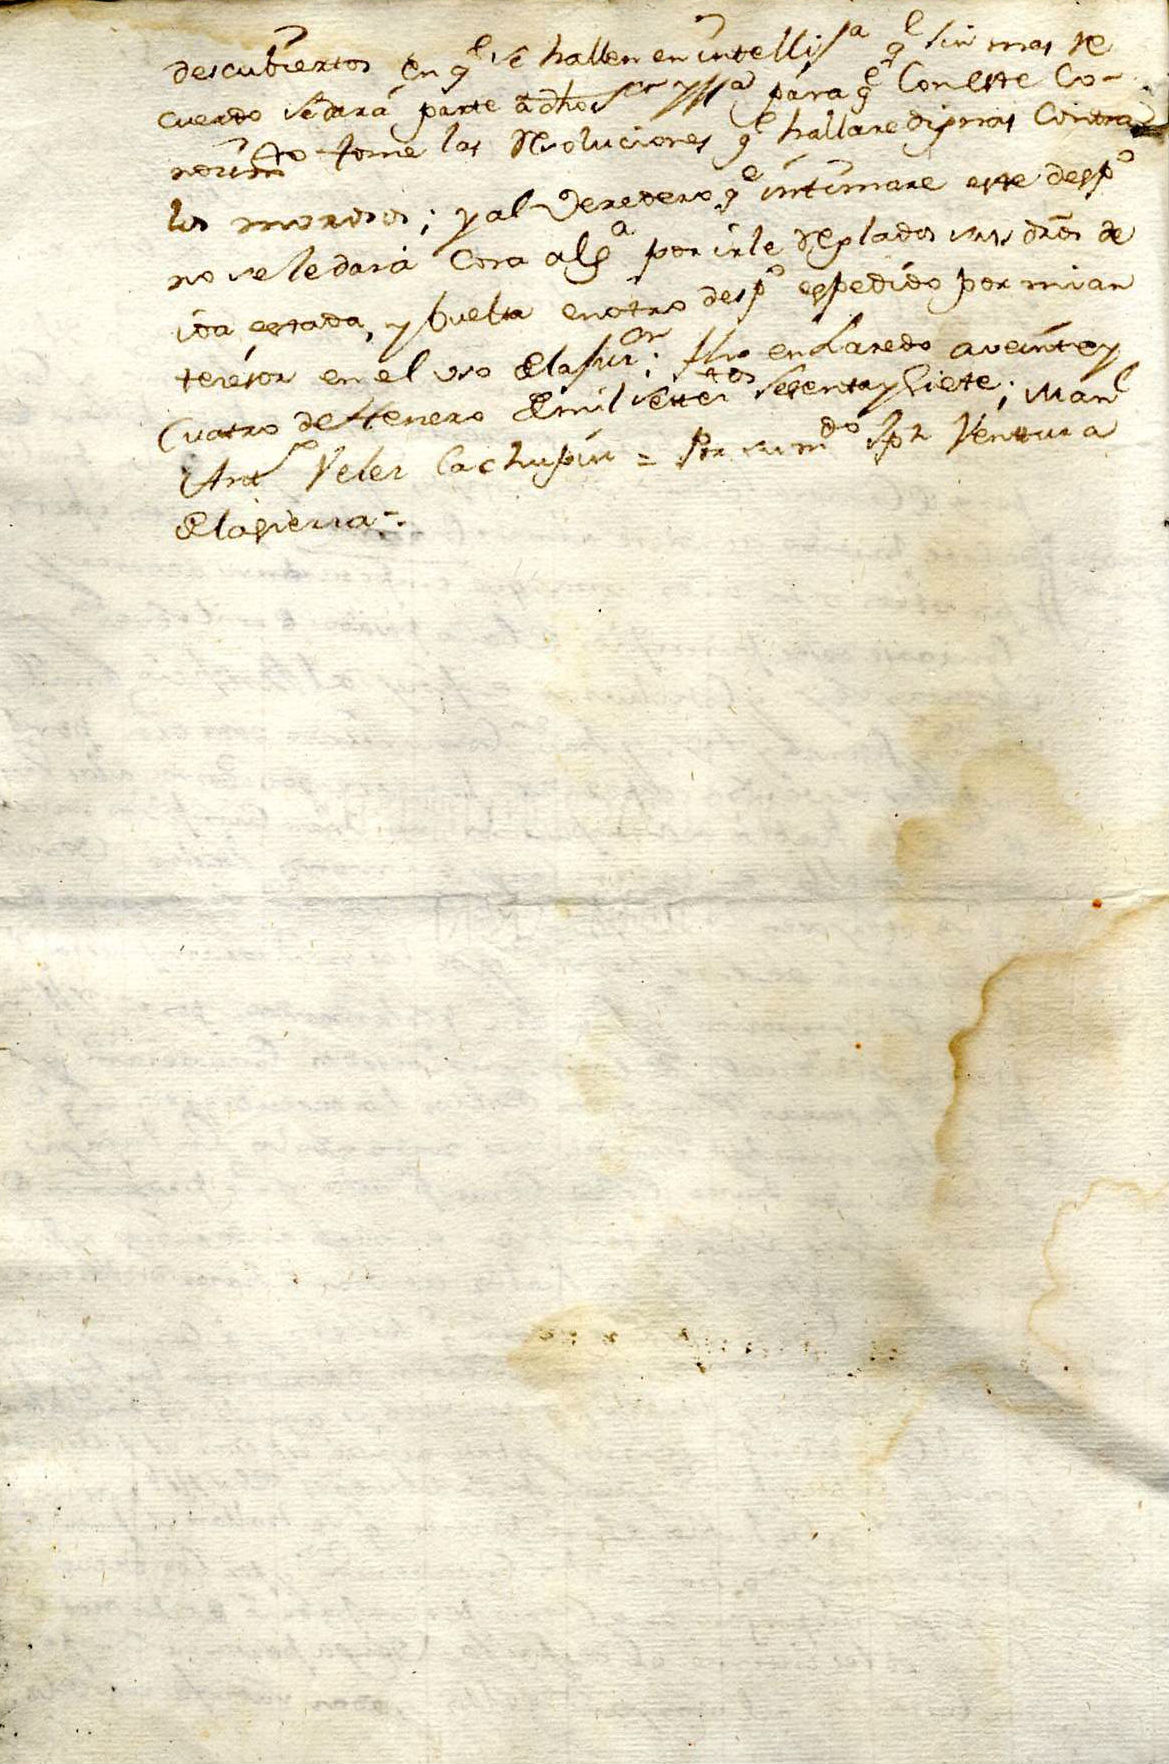 descubiertos en qe se hallen en intelliga qe sin mas re
cuerdo se dará parte a dho Sor Yssa para qe Con este Co-
nocimto tome las Resoluciones qe hallare dignas Contra
los morosos; y al Veredero qe intimare este despo
no se le dará Cosa alga por irle Reglados sus dros de
ida estada, y buelta en otro despo espedido por mi an
tecesor en el uso de la Juron: fho en Laredo a veinte y
Cuatro de Henero de mil settetos sesenta y Siete; Manl
Anto Velez Cachupin = Por su mdo Jph Ventura
de la Sierra-.